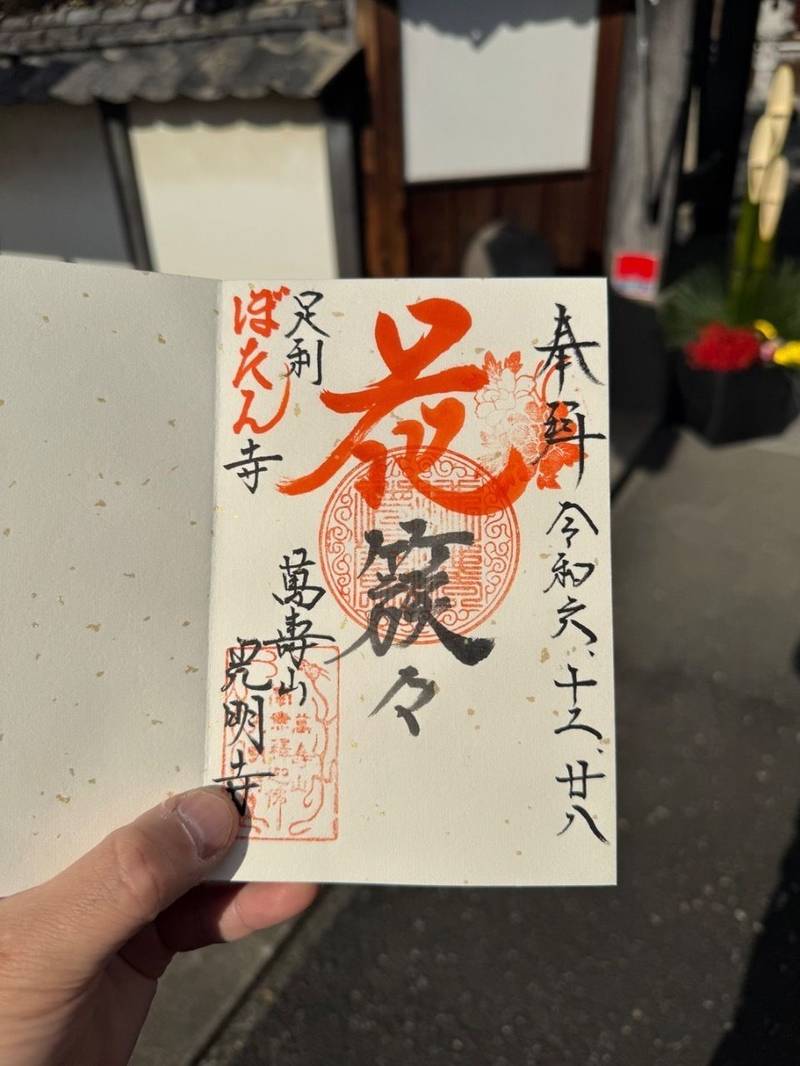 奉拝
令和六、十二、廿八
花簇々
足利
ぼたん寺
萬寿山
光明寺